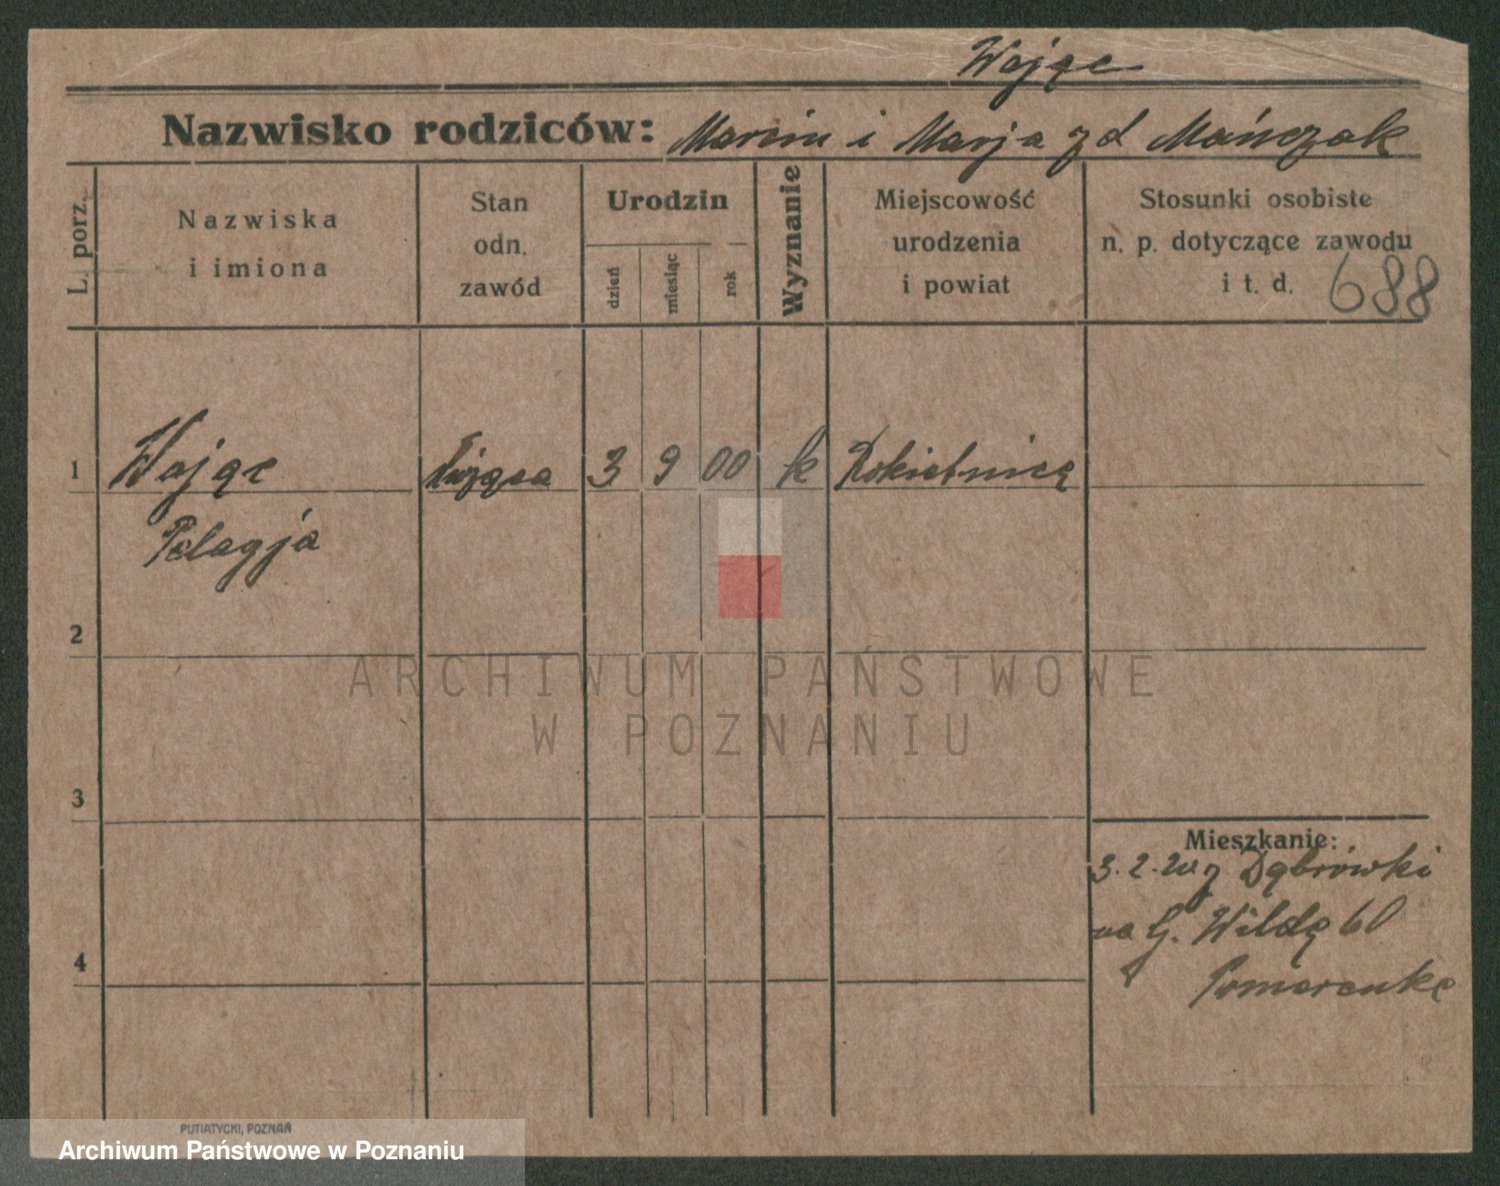 Wojąc
Nazwisko rodziców: Marcin i Marja zd Mańczak
L. porz.
Nazwiska
i imiona
Stan
odn.
zawód
Urodzin
dzień
miesiąc
rok
Wyznanie
Miejscowość
urodzenia
i powiat
Stosunki osobiste
n. p. dotyczące zawodu
i t. d.
688
1
Wojąc
Pelagja
służąca
3 9 00
k
Rokietnica
2
3
4
Mieszkanie:
3. 2. 20 z Dąbrówki
na G. Wildę 60
PUTIATYCKI, POZNAŃ
ARCHIWUM PAŃSTWOWE
W POZNANIU
Archiwum Państwowe w Poznaniu